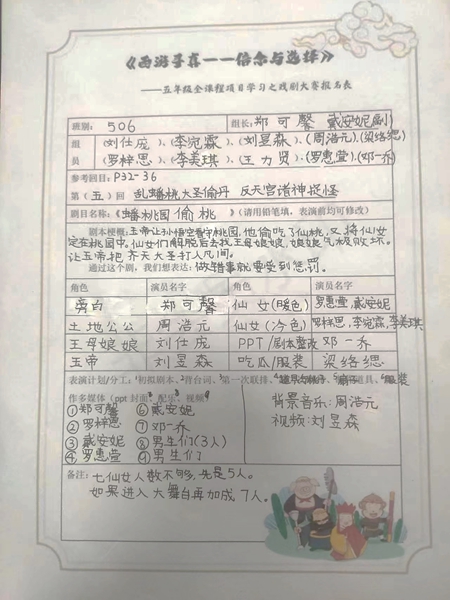 《西游寻真——信念与选择》
——五年级全课程项目学习之戏剧大赛报名表
班别: 506 组长: 郑可馨 戴安妮(副)
组 (刘仕庞)、(李宛霖)、(刘昱森)、(周浩元)、(梁络缌)
员 (罗梓思)、(李美琪)、(王力贤)、(罗惠萱)、(邓一乔)
参考回目: P32-36
第(五)回 乱蟠桃大圣偷丹 反天宫诸神捉怪
剧目名称:《蟠桃园偷桃》(请用铅笔填,表演前均可修改)
剧本梗概: 玉帝让孙悟空看守桃园,他偷吃了仙桃,又将仙女
定在桃园中。仙女们解脱后去找王母娘娘,娘娘气极败坏。
让玉帝把齐天大圣打入凡间。
通过这个剧,我们想表达: 做错事就要受到惩罚。
角色 演员名字 角色 演员名字
旁白 郑可馨 仙女(暖色) 罗惠萱,戴安妮
土地公公 周浩元 仙女(冷色) 罗梓思,李宛霖,李美琪
王母娘娘 刘仕庞 PPT/剧本整改 邓一乔
玉帝 刘昱森 吃瓜/服装 梁络缌
表演计划/分工: 初拟剧本、背台词、第一次联排、道具、服装
作多媒体(ppt 封面、配乐、视频)
背景音乐:周浩元
视频:刘昱森
①郑可馨 ⑥戴安妮
②罗梓思 ⑦邓一乔
③戴安妮 ⑧男生们(3人)
④罗惠萱 ⑨男生们
备注: 七仙女人数不够,先是5人。
如果进入大舞台再加成7人。